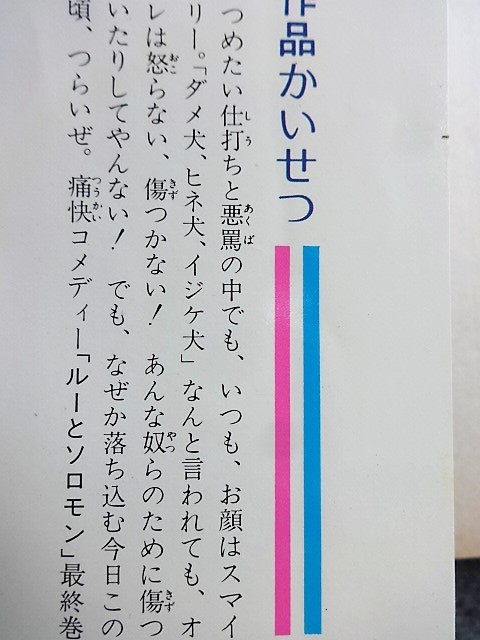 作品かいせつ
つめたい仕打ちと悪罵の中でも、いつも、お顔はスマイ
リー。「ダメ犬、ヒネ犬、イジケ犬」なんと言われても、オ
レは怒らない、傷つかない！　あんな奴らのために傷つ
いたりしてやんない！　でも、なぜか落ち込む今日この
頃、つらいぜ。痛快コメディー「ルーとソロモン」最終巻